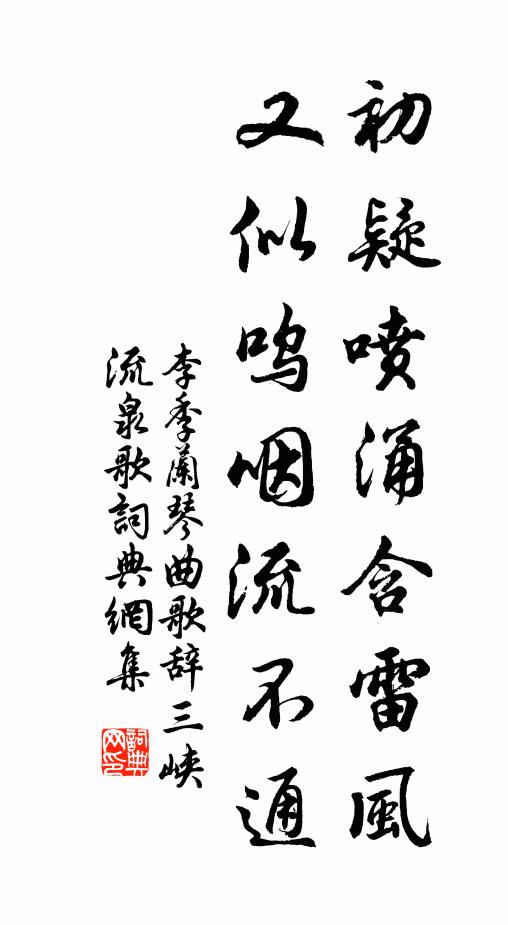 初疑噴涌含雷風
又似鸣咽流不通
李季蘭琴曲歌辞三峡
流泉歌詞典網集
詞典网印